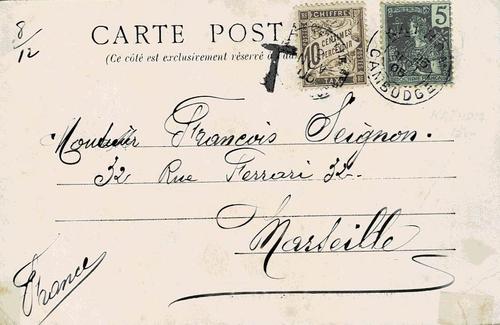 8/12
CARTE POSTA
(Ce côté est exclusivement réservé
CHIFFRE
10 CENTIMES
À PERCEVOIR
TAXE
5
T
CAMBODGE
Monsieur François Seignon.
32 Rue Ferrari 32.
Marseille
France